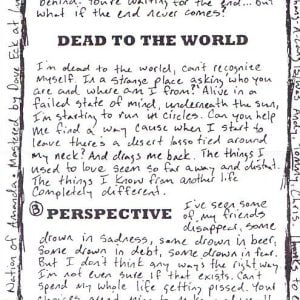 behind. You're waiting for the end... but
what if the end never comes?
DEAD TO THE WORLD
I'm dead to the world, can't recognize
myself. In a strange place asking who you
are and where am I from? Alive in a
failed state of mind, underneath the sun,
I'm starting to run in circles. Can you help
me find a way cause when I start to
leave there's a desert lasso tied around
my neck? And drags me back. The things I
used to love seem so far away and distant.
The things I know from another life
Completely different.
B PERSPECTIVE
I've seen some
of my friends
disappear, some
drown in sadness, some drown in beer,
Some drown in debt, some drown in fear.
But I don't think any ways the right way
I'm not even sure if that exists. Can't
spend my whole life getting pissed. Your
Nation of Amanda, Mastered by Dave Eck at